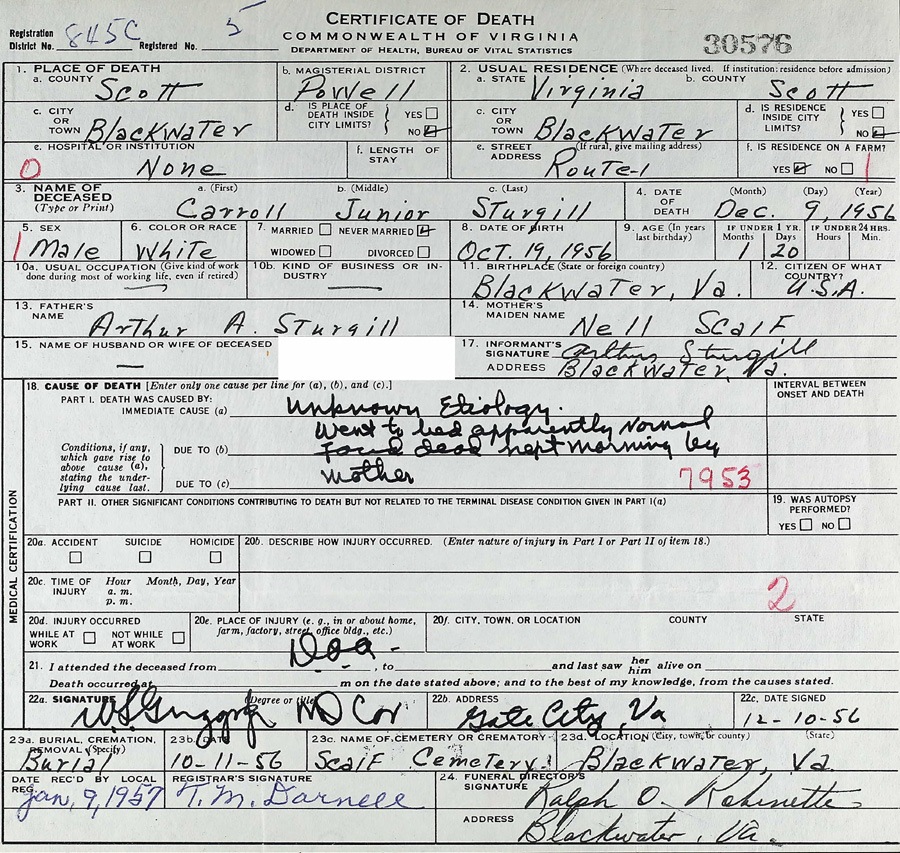 CERTIFICATE OF DEATH
COMMONWEALTH OF VIRGINIA
DEPARTMENT OF HEALTH, BUREAU OF VITAL STATISTICS
Registration District No. 845C Registered No. 5
30576
1. PLACE OF DEATH
a. COUNTY Scott
b. MAGISTERIAL DISTRICT Powell
2. USUAL RESIDENCE (Where deceased lived. If institution: residence before admission)
a. STATE Virginia b. COUNTY Scott
c. CITY OR TOWN Blackwater
d. IS PLACE OF DEATH INSIDE CITY LIMITS? YES NO
c. CITY OR TOWN Blackwater
d. IS RESIDENCE INSIDE CITY LIMITS? YES NO
e. HOSPITAL OR INSTITUTION None
0
f. LENGTH OF STAY
e. STREET ADDRESS (If rural, give mailing address) Route-1
f. IS RESIDENCE ON A FARM? YES NO
1
3. NAME OF DECEASED (Type or Print)
a. (First) b. (Middle) c. (Last)
Carroll Junior Sturgill
4. DATE OF DEATH (Month) (Day) (Year)
Dec. 9, 1956
5. SEX Male
1
6. COLOR OR RACE White
7. MARRIED NEVER MARRIED
WIDOWED DIVORCED
8. DATE OF BIRTH Oct. 19, 1956
9. AGE (In years last birthday)
IF UNDER 1 YR. Months Days 1 20
IF UNDER 24 HRS. Hours Min.
10a. USUAL OCCUPATION (Give kind of work done during most of working life, even if retired)
10b. KIND OF BUSINESS OR INDUSTRY
11. BIRTHPLACE (State or foreign country) Blackwater, Va.
12. CITIZEN OF WHAT COUNTRY? U.S.A.
13. FATHER'S NAME Arthur A. Sturgill
14. MOTHER'S MAIDEN NAME Nell Scalf
15. NAME OF HUSBAND OR WIFE OF DECEASED
17. INFORMANT'S SIGNATURE Arthur Sturgill
ADDRESS Blackwater, Va.
MEDICAL CERTIFICATION
18. CAUSE OF DEATH [Enter only one cause per line for (a), (b), and (c).]
INTERVAL BETWEEN ONSET AND DEATH
PART I. DEATH WAS CAUSED BY:
IMMEDIATE CAUSE (a) Unknown Etiology.
Went to bed apparently normal
Conditions, if any, which gave rise to above cause (a), stating the underlying cause last.
DUE TO (b) Found dead next morning by
DUE TO (c) mother
7953
PART II. OTHER SIGNIFICANT CONDITIONS CONTRIBUTING TO DEATH BUT NOT RELATED TO THE TERMINAL DISEASE CONDITION GIVEN IN PART I(a)
19. WAS AUTOPSY PERFORMED?
YES NO
20a. ACCIDENT SUICIDE HOMICIDE
20b. DESCRIBE HOW INJURY OCCURRED. (Enter nature of injury in Part I or Part II of item 18.)
20c. TIME OF INJURY Hour Month, Day, Year
a. m.
p. m.
2
20d. INJURY OCCURRED
WHILE AT WORK NOT WHILE AT WORK
20e. PLACE OF INJURY (e. g., in or about home, farm, factory, street, office bldg., etc.)
20f. CITY, TOWN, OR LOCATION COUNTY STATE
21. I attended the deceased from D.o.a. - , to and last saw her him alive on
Death occurred at m on the date stated above; and to the best of my knowledge, from the causes stated.
22a. SIGNATURE (Degree or title) MD Cor
22b. ADDRESS Gate City, Va
22c. DATE SIGNED 12-10-56
23a. BURIAL, CREMATION, REMOVAL (Specify) Burial
23b. DATE 10-11-56
23c. NAME OF CEMETERY OR CREMATORY Scalf Cemetery
23d. LOCATION (City, town, or county) (State) Blackwater, Va.
DATE REC'D BY LOCAL REG. Jan, 9, 1957
REGISTRAR'S SIGNATURE T. M. Darnell
24. FUNERAL DIRECTOR'S SIGNATURE Ralph O. Robinette
ADDRESS Blackwater, Va.